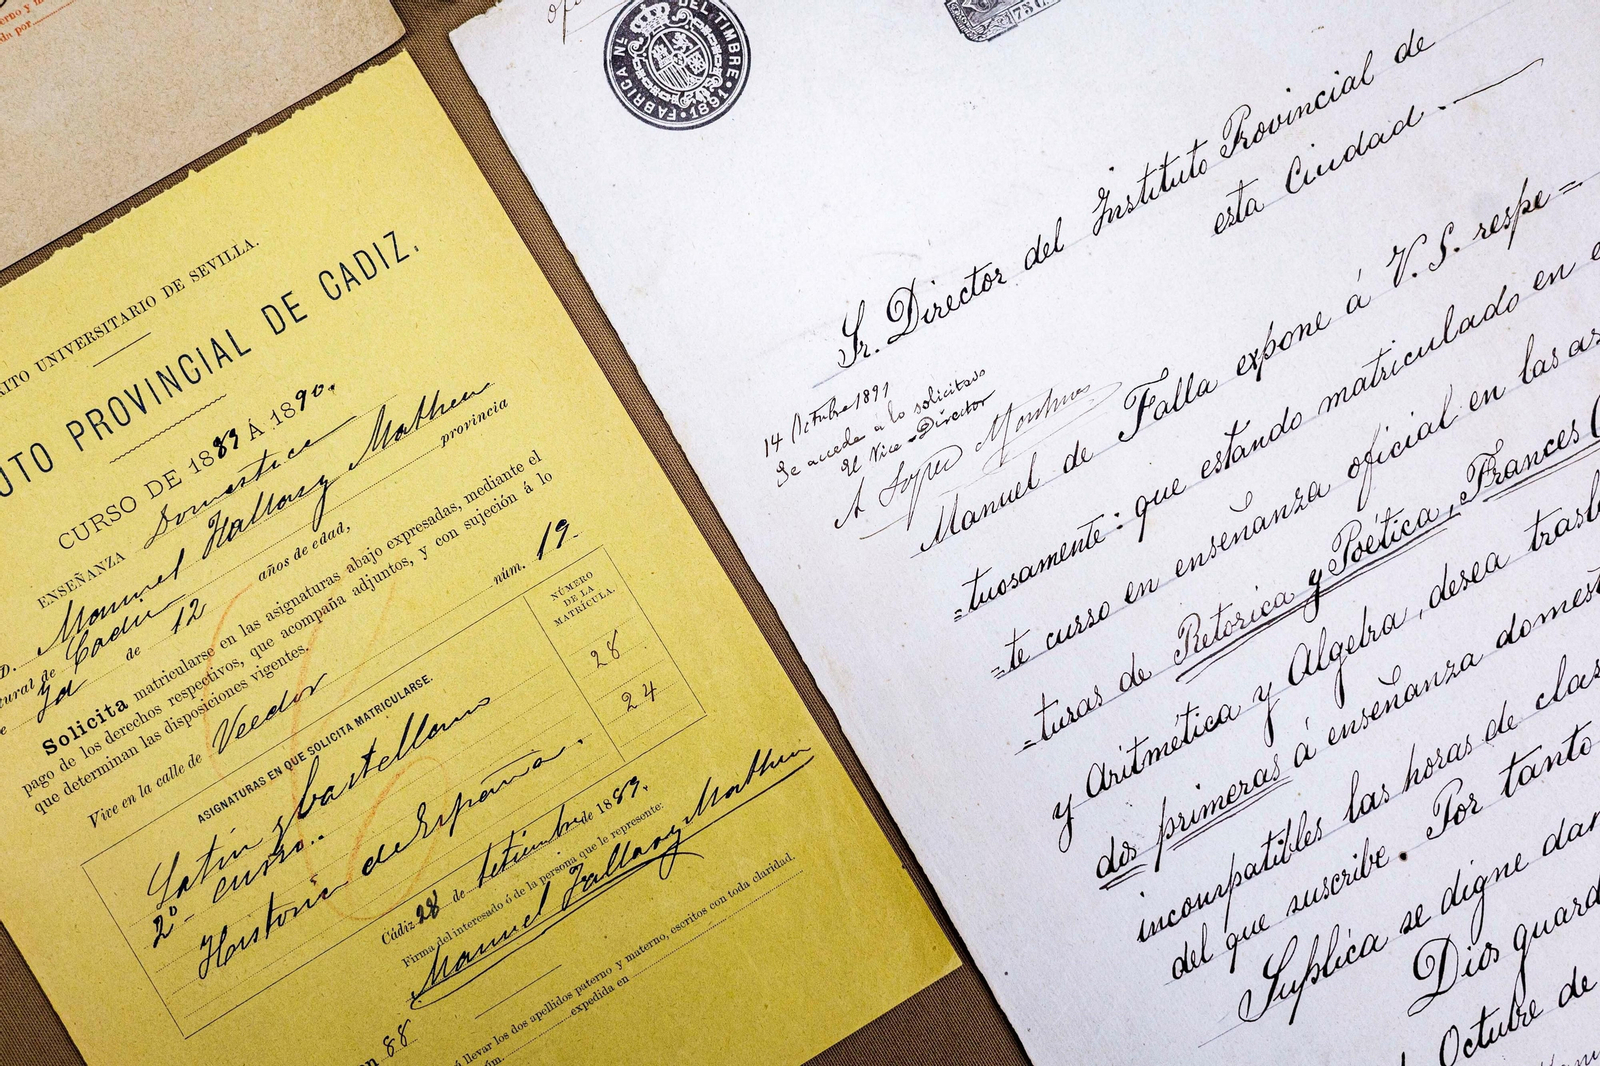 RITO UNIVERSITARIO DE SEVILLA.
UTO PROVINCIAL DE CADIZ.
CURSO DE 1889 Á 1890.
ENSEÑANZA Domestica
D. Manuel Falla y Matheu
tural de Cadiz provincia
e Id de 12 años de edad,
Solicita matricularse en las asignaturas abajo expresadas, mediante el
pago de los derechos respectivos, que acompaña adjuntos, y con sujeción á lo
que determinan las disposiciones vigentes.
Vive en la calle de Veedor núm. 19.
ASIGNATURAS EN QUE SOLICITA MATRICULARSE.
NÚMERO
DE LA
MATRÍCULA.
Latin y Castellano
2º curso..
28
Historia de España.
24
Cádiz 28 de Setiembre de 1889.
Firma del interesado ó de la persona que le represente:
Manuel Falla y Matheu
á llevar los dos apellidos paterno y materno, escritos con toda claridad.
expedida en
88
FABRICA Nˡ DEL TIMBRE
1891
Sr. Director del Instituto Provincial de
esta Ciudad.
14 Octubre 1891
Se accede a lo solicitado
El Vice-Director
Manuel de Falla expone á V. S. respe=
=tuosamente: que estando matriculado en e
=te curso en enseñanza oficial en las as
=turas de Retorica y Poética, Frances (
y Aritmética y Algebra, desea trasl
dos primeras á enseñanza domest
incompatibles las horas de clas
del que suscribe. Por tanto
Suplica se digne dar
Dios guard
Octubre de